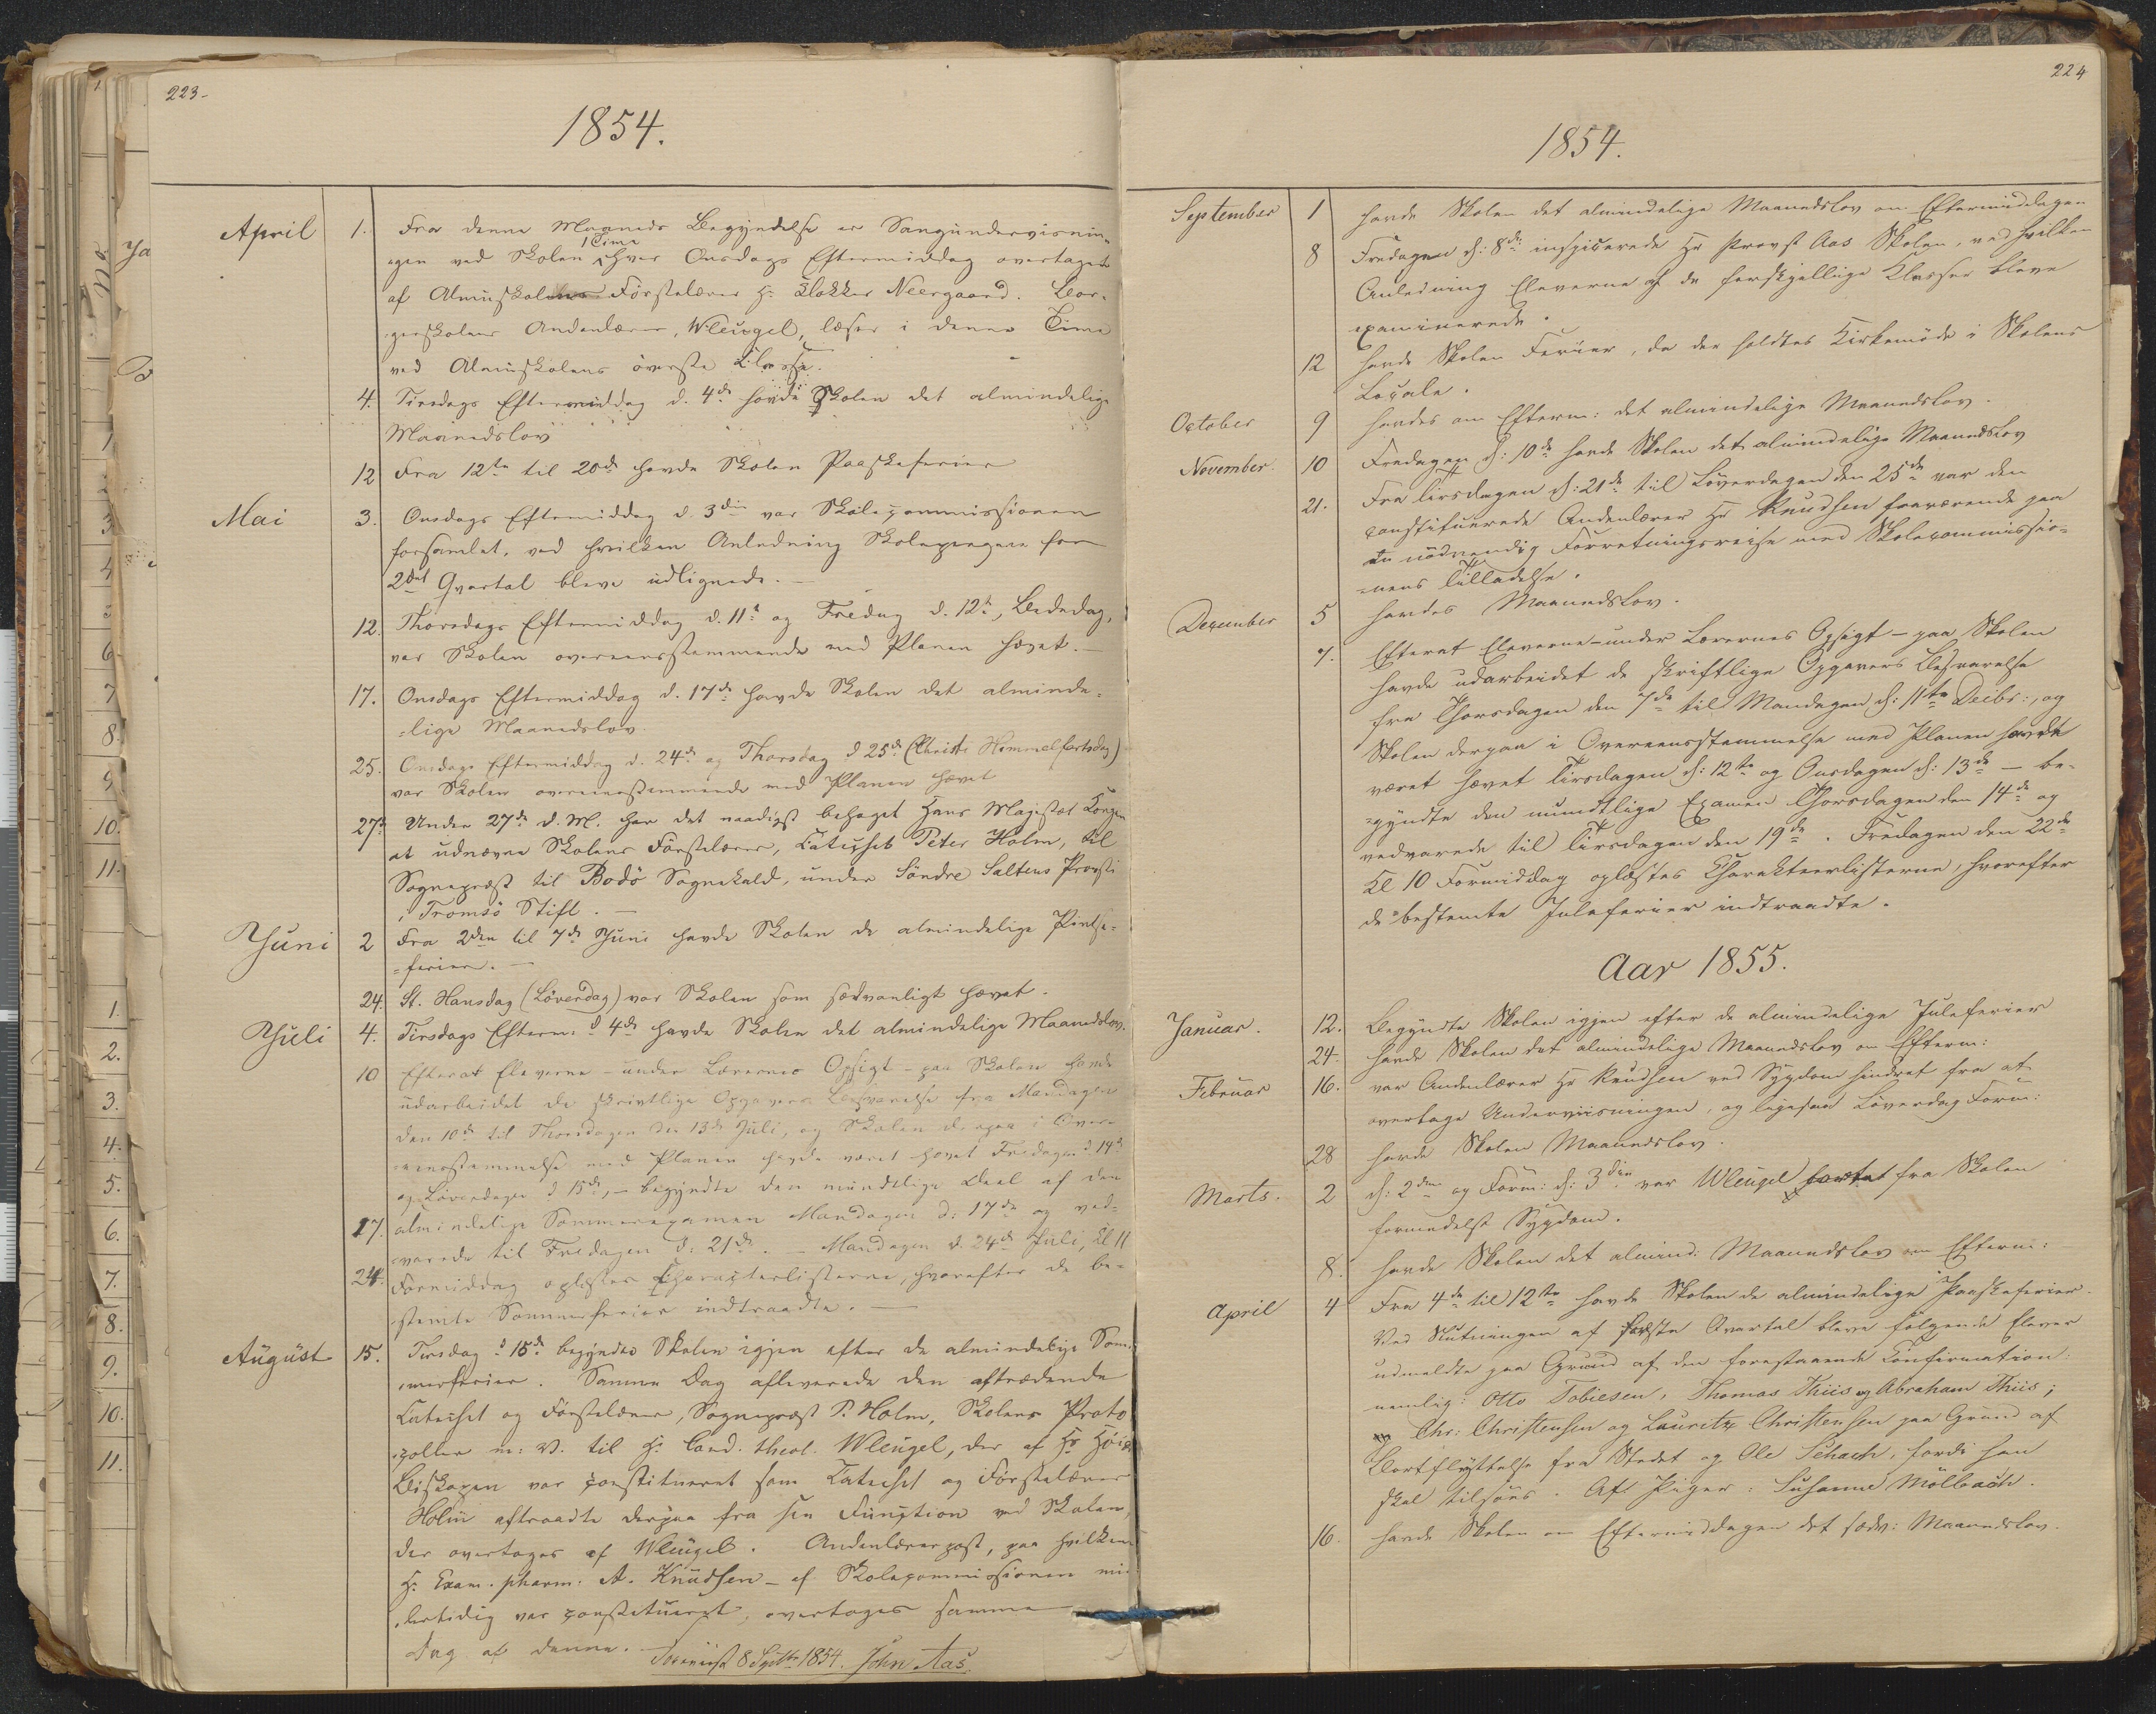 223-
1854.
April 1. Fra denne Maaneds Begyndelse er Sangundervisnin-
gen ved Skolen 1 Time hver Onsdags Eftermiddag overtaget
af Almuskolens Førstelærer H: Klokker Neergaard. Bor-
gerskolens Andenlærer, Wleugel, læser i denne Time
ved Almuskolens øverste Klasse.
4. Tirsdags Eftermiddag d. 4de havde Skolen det almindelige
Maanedslov
12 Fra 12te til 20de havde Skolen Paaskeferier
Mai 3. Onsdags Eftermiddag d. 3die var Skolecommissionen
forsamlet, ved hvilken Anledning Skolepengene for
2det Qvartal bleve udlignede. —
12. Thorsdags Eftermiddag d. 11te og Fredag d. 12te, Bededag,
var Skolen overeensstemmende med Planen hævet. —
17. Onsdags Eftermiddag d. 17de havde Skolen det alminde-
-lige Maanedslov.
25. Onsdags Eftermiddag d. 24de og Thorsdag d 25de (Christi Himmelfartsdag)
var Skolen overeensstemmende med Planen hævet
27de Under 27de d. M. har det naadigst behaget Hans Majestæt Kongen
at udnævne Skolens Førstelærer, Catechet Peter Holm, til
Sognepræst til Bodø Sognekald, under Søndre Saltens Provsti
i Tromsø Stift. —
Juni 2 Fra 2den til 7de Juni havde Skolen de almindelige Pintse-
-ferier. —
24. St. Hansdag (Løverdag) var Skolen som sædvanligt hævet.
Juli 4. Tirsdags Efterm: d 4de havde Skolen det almindelige Maanedslov.
10 Efterat Eleverne - under Lærernes Opsigt - paa Skolen havde
udarbeidet de skriftlige Opgavers Besvarelse fra Mandagen
den 10de til Thorsdagen den 13de Juli, og Skolen derpaa i Over-
eensstemmelse med Planen havde været hævet Fredagen d 14de
og Løverdagen d 15de, - begyndte den mundtlige Deel af den
17. almindelige Sommerexamen Mandagen d: 17de og ved-
varede til Fredagen d: 21de. — Mandagen d. 24de Juli, Kl 11
24. Formiddag oplæstes Characterlisterne, hvorefter de be-
stemte Sommerferier indtraadte. —
August 15. Tirsdag d 15de begyndte Skolen igjen efter de almindelige Som-
merferier. Samme Dag afleverede den aftrædende
Catechet og Førstelærer, Sognepræst P. Holm, Skolens Proto
coller m: V. til H: Cand. theol. Wleugel, der af Hr
Biskopen var constitueret som Catechet og Førstelærer
Holm aftraadte derpaa fra sin Function ved Skolen,
der overtages af Wleugel. Andenlærerpost, paa hvilken
H: Exam. pharm: A. Knudsen - af Skolecommissionen mid
lertidig var constitueret, overtages samme
Dag af denne. —
8 Septbr 1854. John Aas.
224
1854.
September 1 havde Skolen det almindelige Maanedslov om Eftermiddagen
8 Fredagen d: 8de inspicerede Hr Provst Aas Skolen, ved hvilken
Anledning Eleverne af de forskjellige Klasser bleve
examinerede.
12 havde Skolen Ferier, da der holdtes Kirkemøde i Skolens
Locale.
October 9 havdes om Efterm: det almindelige Maanedslov.
November. 10 Fredagen d: 10de havde Skolen det almindelige Maanedslov
21. Fra Tirsdagen d: 21de til Løverdagen den 25de var den
constituerede Andenlærer Hr Knudsen fraværende paa
en nødvendig Forretningsreise med Skolecommissio-
-nens Tilladelse.
December 5 havdes Maanedslov.
7. Efterat Eleverne - under Lærernes Opsigt - paa Skolen
havde udarbeidet de skriftlige Opgavers Besvarelse
fra Thorsdagen den 7de til Mandagen d: 11te Decbr:, og
Skolen derpaa i Overeensstemmelse med Planen havde
været hævet Tirsdagen d: 12te og Onsdagen d: 13de - be-
gyndte den mundtlige Examen Thorsdagen den 14de og
vedvarede til Tirsdagen den 19de. Fredagen den 22de
Kl 10 Formiddag oplæstes Charakteerlisterne, hvorefter
de bestemte Juleferier indtraadte.
Aar 1855.
Januar. 12. Begyndte Skolen igjen efter de almindelige Juleferier
24. havde Skolen det almindelige Maanedslov om Efterm:
Februar 16. var Andenlærer Hr Knudsen ved Sygdom hindret fra at
overtage Underviisningen, og ligesaa Løverdag Form:
28 havde Skolen Maanedslov.
Marts. 2 d: 2den og Form: d: 3die var Wleugel fra Skolen
formedelst Sygdom.
8. havde Skolen det almind: Maanedslov om Efterm:
April 4 Fra 4de til 12te havde Skolen de almindelige Paaskeferier.
Ved Slutningen af første Qvartal bleve følgende Elever
udmeldte paa Grund af den forestaaende Confirmation:
nemlig: Otto Tobiesen, Thomas Thiis og Abraham Thiis;
Chr: Christensen og Lauritz Christensen paa Grund af
Bortflyttelse fra Stedet og Ole Schach, fordi han
skal tilsøes. Af Piger: Susanne Mölbach.
16. havde Skolen om Eftermiddagen det sædv: Maanedslov.